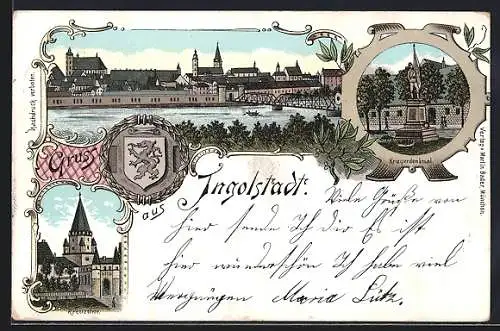 Nachdruck verboten.
Gruss
aus
Ingolstadt.
Kriegerdenkmal
Verlag v. Martin Bader, München.
Kreuzthor.
Viele Grüße von
hier sende Ich dir Es ist
hier wunderschön Ich habe viel
Vergnügen Maria Lutz.